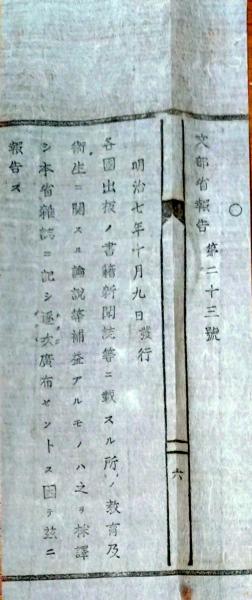 ○
文部省報告 第二十三號
六
明治七年十月九日發行
各國出板ノ書籍新聞誌等ニ載スル所ノ教育及
衛生ニ關スル論説等補益アルモノハ之ヲ採譯
シ本省雜誌ニ記シ逐次廣布セントス因テ茲ニ
報告ス